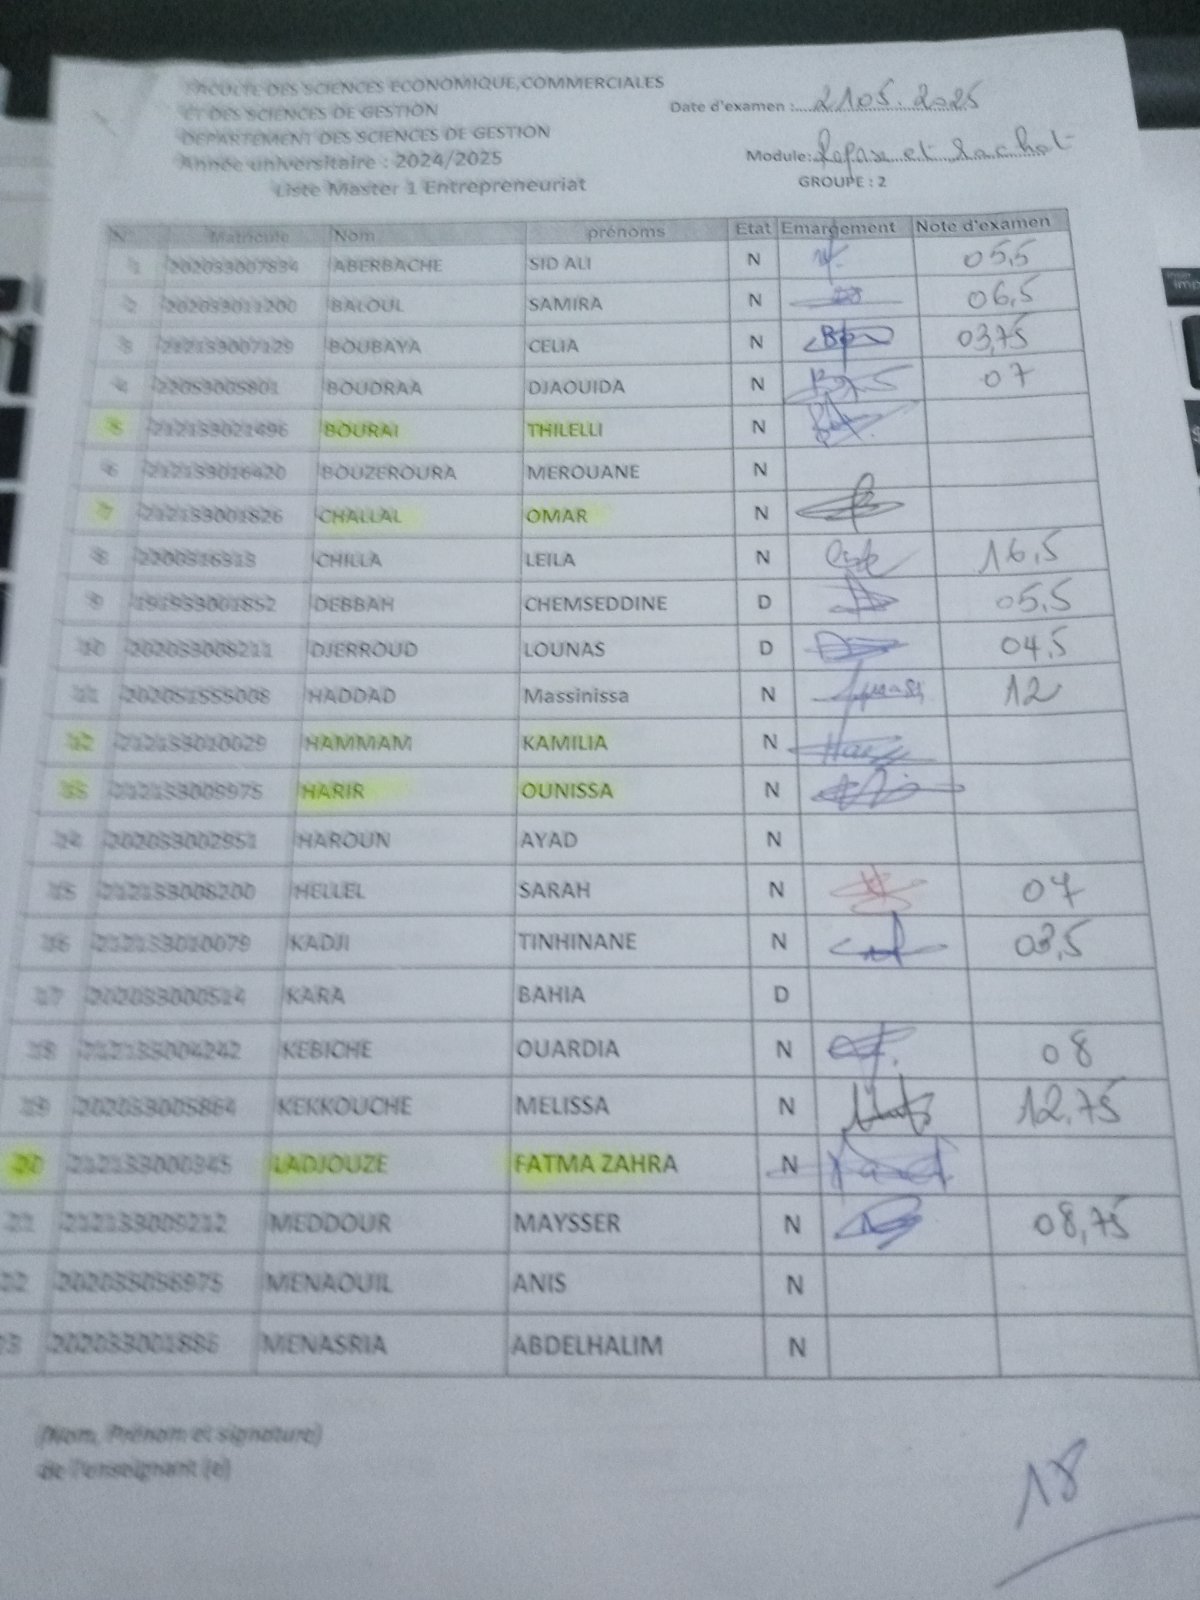 FACULTE DES SCIENCES ECONOMIQUE,COMMERCIALES
ET DES SCIENCES DE GESTION
DEPARTEMENT DES SCIENCES DE GESTION
Année universitaire : 2024/2025
Liste Master 1 Entrepreneuriat
Date d'examen : 2105.2025
Module: et Rachat
GROUPE : 2
N° Matricule Nom prénoms Etat Emargement Note d'examen
1 202033007834 ABERBACHE SID ALI N 05,5
2 202033011200 BALOUL SAMIRA N 06,5
3 212133007129 BOUBAYA CELIA N 03,75
4 22053005801 BOUDRAA DJAOUIDA N 07
5 212133021496 BOURAI THILELLI N
6 212133016420 BOUZEROURA MEROUANE N
7 212133001826 CHALLAL OMAR N
8 2200316313 CHILLA LEILA N 16,5
9 191933001852 DEBBAH CHEMSEDDINE D 05,5
10 202033008211 DJERROUD LOUNAS D 04,5
11 202051555008 HADDAD Massinissa N 12
12 212133010029 HAMMAM KAMILIA N
13 212133005975 HARIR OUNISSA N
14 202033002951 HAROUN AYAD N
15 212133008200 HELLEL SARAH N 07
16 212133010079 KADJI TINHINANE N 03,5
17 202033000514 KARA BAHIA D
18 212135004242 KEBICHE OUARDIA N 08
19 202033005864 KEKKOUCHE MELISSA N 12,75
20 212133000345 LADJOUZE FATMA ZAHRA N
21 212133009212 MEDDOUR MAYSSER N 08,75
22 202035056975 MENAOUIL ANIS N
23 202033001886 MENASRIA ABDELHALIM N
(Nom, Prénom et signature)
de l'enseignant (e)
18